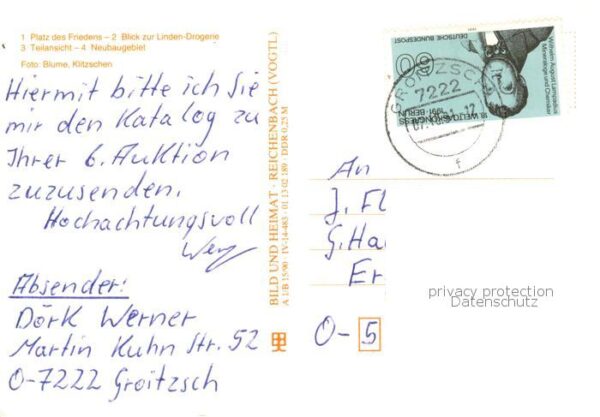 1 Platz des Friedens – 2 Blick zur Linden-Drogerie
3 Teilansicht – 4 Neubaugebiet
Foto: Blume, Klitzschen
Hiermit bitte ich Sie
mir den Katalog zu
Ihrer 6. Auktion
zuzusenden.
Hochachtungsvoll
Absender:
Dörk Werner
Martin Kuhn Str. 52
O-7222 Groitzsch
BILD UND HEIMAT · REICHENBACH (VOGTL)
A 1/B 15/90 · IV-14-483 · 01 13 02 189 · DDR 0,25 M
DEUTSCHE BUNDESPOST
60
18. WELTGASKONGRESS
1991 BERLIN
Wilhelm August Lampadius
GROITZSCH
7222
An
J. Fl
G. Ha
Er
O- 5
privacy protection
Datenschutz